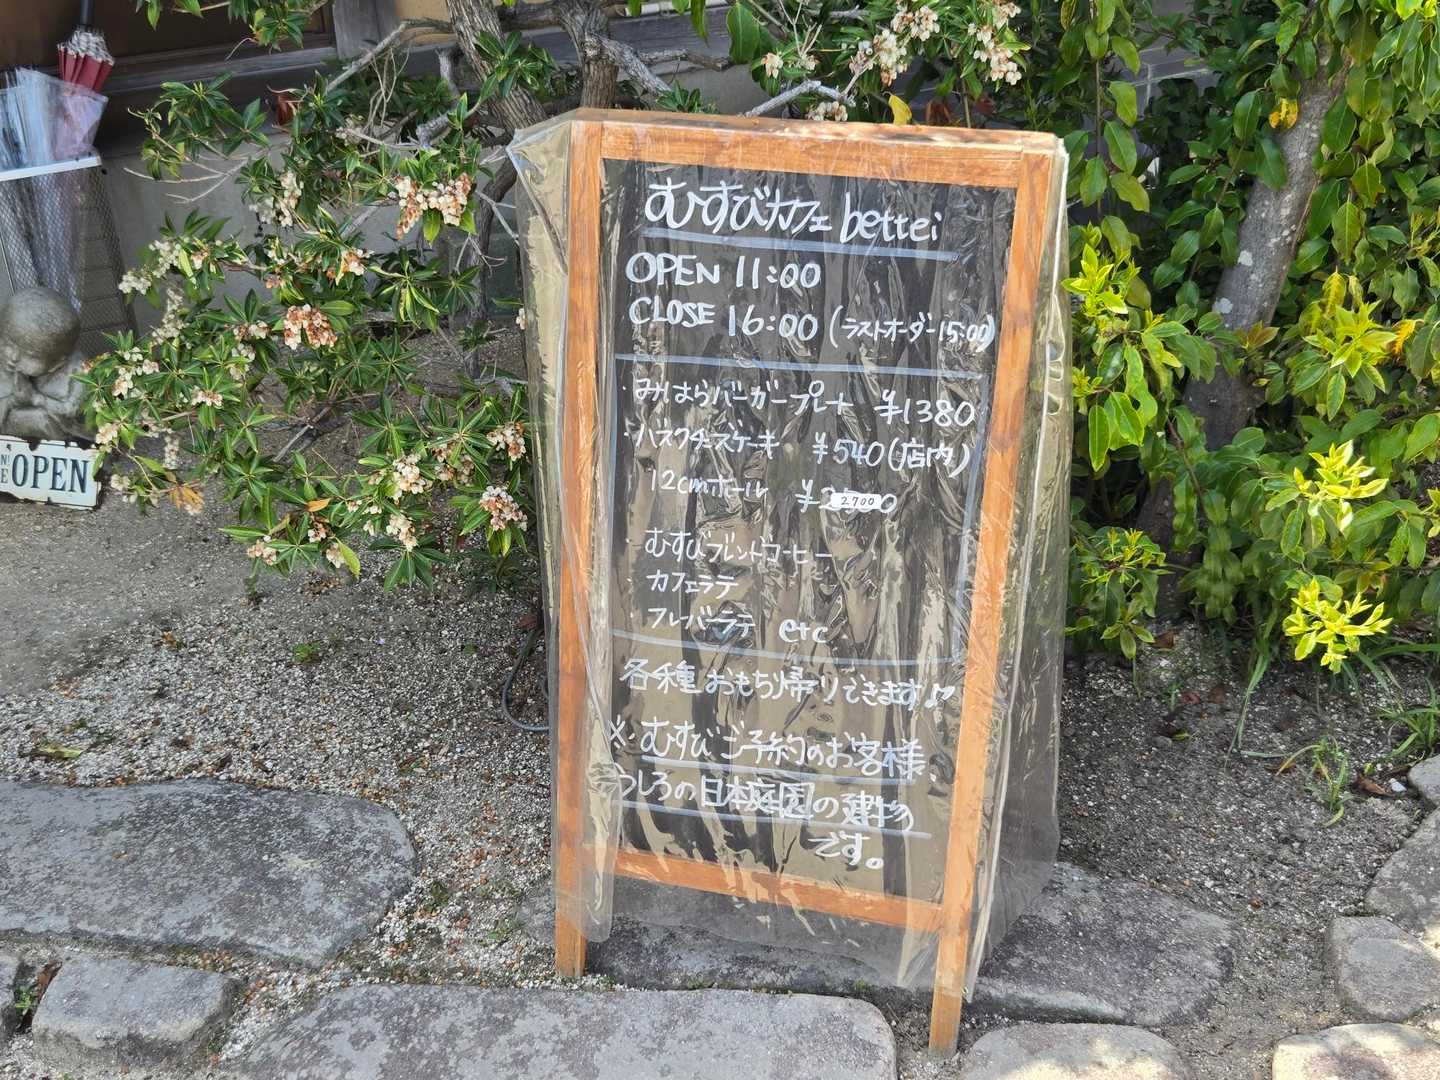 むすびカフェ bettei
OPEN 11:00
CLOSE 16:00 (ラストオーダー15:00)
・みはらバーガープレート ¥1380
・バスクチーズケーキ ¥540(店内)
12cmホール ¥2700
・むすびブレンドコーヒー
・カフェラテ
・フレーバーラテ etc
各種おもち帰りできます♪
※・むすびご予約のお客様、
うしろの日本庭園の建物
です。
OPEN